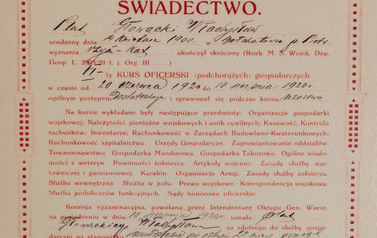 ŚWIADECTWO.
Plut. Głoracki Władysław
urodzony dnia 2 Kwietnia 1900. w
wyznania Rzym-Kat. ukończył skrócony (Rozk. M. S. Wojsk. Dep.
Gosp. L. T. j. Org. III )
VI-ty KURS OFICERSKI (podchorążych) gospodarczych
w czasie od 20 czerwca 1920 do 10 sierpnia 1920 z
ogólnym postępem i sprawował się podczas kursu wzorowo
Na kursie wykładane były następujące przedmioty: Organizacja gospodarki
wojskowej; Należytości pieniężne wojskowych i osób cywilnych; Kasowość; Kontrola
rachunków; Inwentarze; Rachunkowość w Zarządach Budowlano-Kwaterunkowych;
Rachunkowość szpitalnictwa. Urzędy Gospodarcze. Zaprowiantowanie oddziałów.
Towaroznawstwo. Gospodarka Mundurowa. Gospodarka Taborowa. Ogólne wiado-
mości z weteryn. Powinności żołnierza. Artykuły wojenne. Zasady służby war-
towniczej i garnizonowej. Karabin. Organizacja Armji. Zasady służby żołnierza.
Służba wewnętrzna. Służba w polu. Prawo wojskowe. Korespondencja wojskowa.
Służba podoficerów funkcyjnych. Sądy honorowe oficerskie.
Komisja egzaminacyjna, powołana przez Intendenturę Okręgu Gen. Warsz.
na posiedzeniu w dniu 10 sierpnia 1920 uznała plut.
Władysława za zdolnego do służby gospo-
darczej na stanowisku